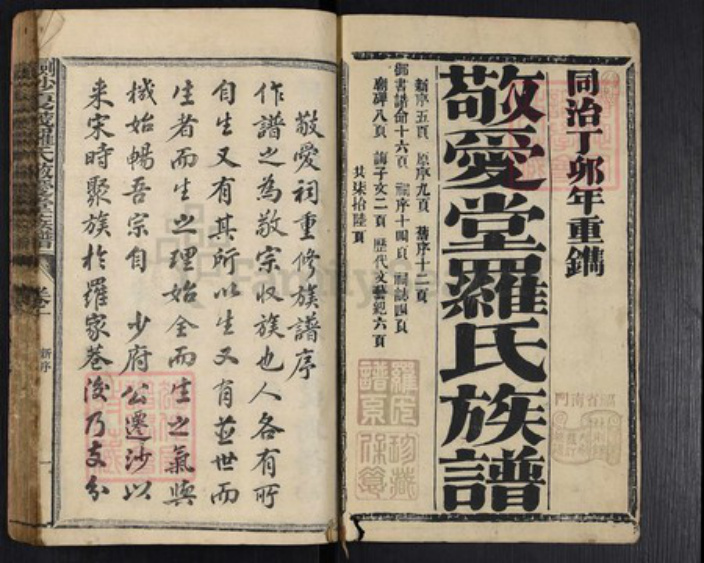 同治丁卯年重鐫
敬愛堂羅氏族譜
新序五頁 原序九頁 舊序十二頁
御書誥命十六頁 祠序十四頁 祠誌四頁
廟碑八頁 誨子文二頁 歷代文藝紀六頁
共柒拾陸頁
羅氏珍藏
敬愛祠重修族譜序
作譜之為敬宗收族也人各有所
自生又有其所以生又有並世而
生者而生之理始全而生之氣與
機始暢吾宗自 少府公遷沙以
来宋時聚族於羅家巷後乃支分
羅氏敬愛堂族譜
卷一
新序
一